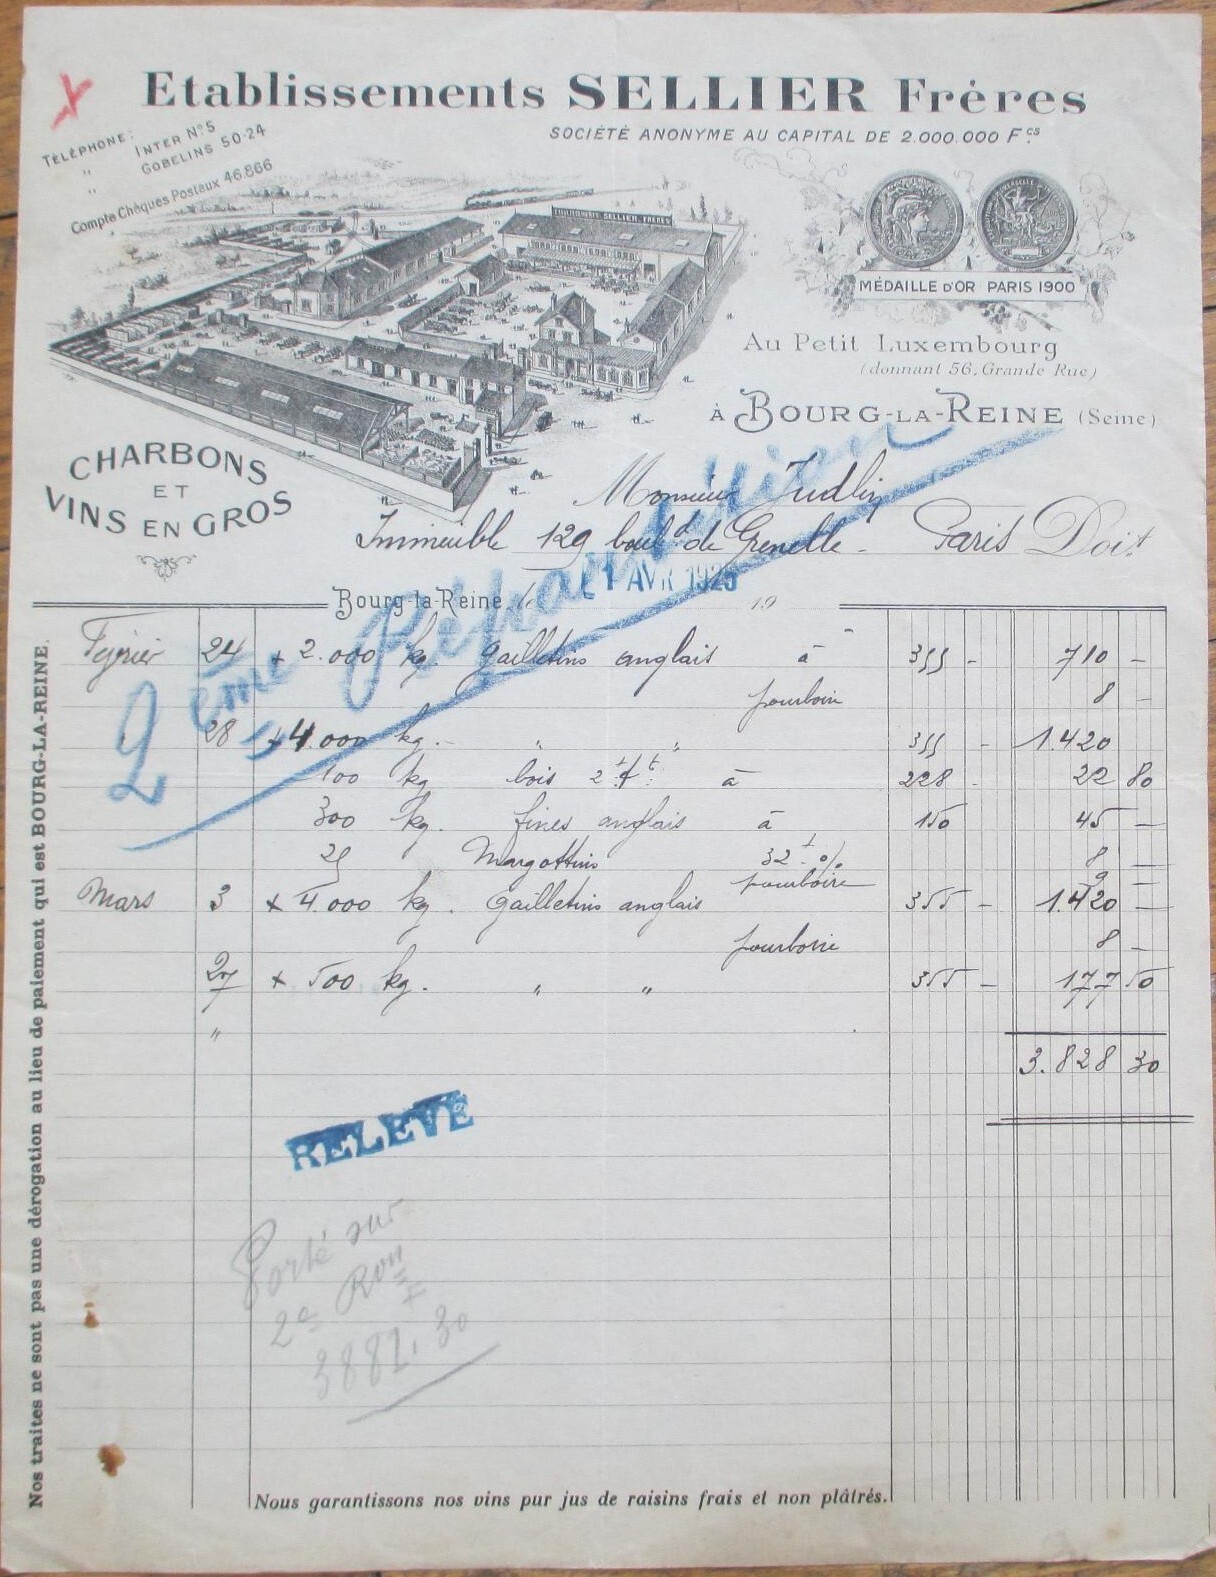 Etablissements SELLIER Frères
SOCIÉTÉ ANONYME AU CAPITAL DE 2.000.000 Fcs
TÉLÉPHONE: INTER N° 5
" GOBELINS 50-24
"
Compte Chèques Postaux 46.866
ETABLISSEMENTS SELLIER FRÈRES
MÉDAILLE D'OR PARIS 1900
Au Petit Luxembourg
(donnant 56, Grande Rue)
À BOURG-LA-REINE (Seine)
CHARBONS
ET
VINS EN GROS
Monsieur Judlin
Immeuble 129 boul.d de Grenelle - Paris Doit
Bourg-la-Reine, le 1 AVR 1925 19
2ème Répartition
Février 24 x 2.000 kg. gailletins anglais à 355 - 710 -
pourboire 8 -
28 x 4.000 kg. - " " 355 - 1.420
100 kg bois 2 t à 228 - 22 80
300 kg. fines anglais à 150 45 -
25 Margottins 32 t % 8 -
pourboire 9 -
Mars 3 x 4.000 kg. gailletins anglais 355 - 1.420 -
pourboire 8 -
27 x 500 kg. " " 355 - 177 50
"
3.828 30
RELEVÉ
Porté sur
2e Ron
3882,30
Nos traites ne sont pas une dérogation au lieu de paiement qui est BOURG-LA-REINE.
Nous garantissons nos vins pur jus de raisins frais et non plâtrés.